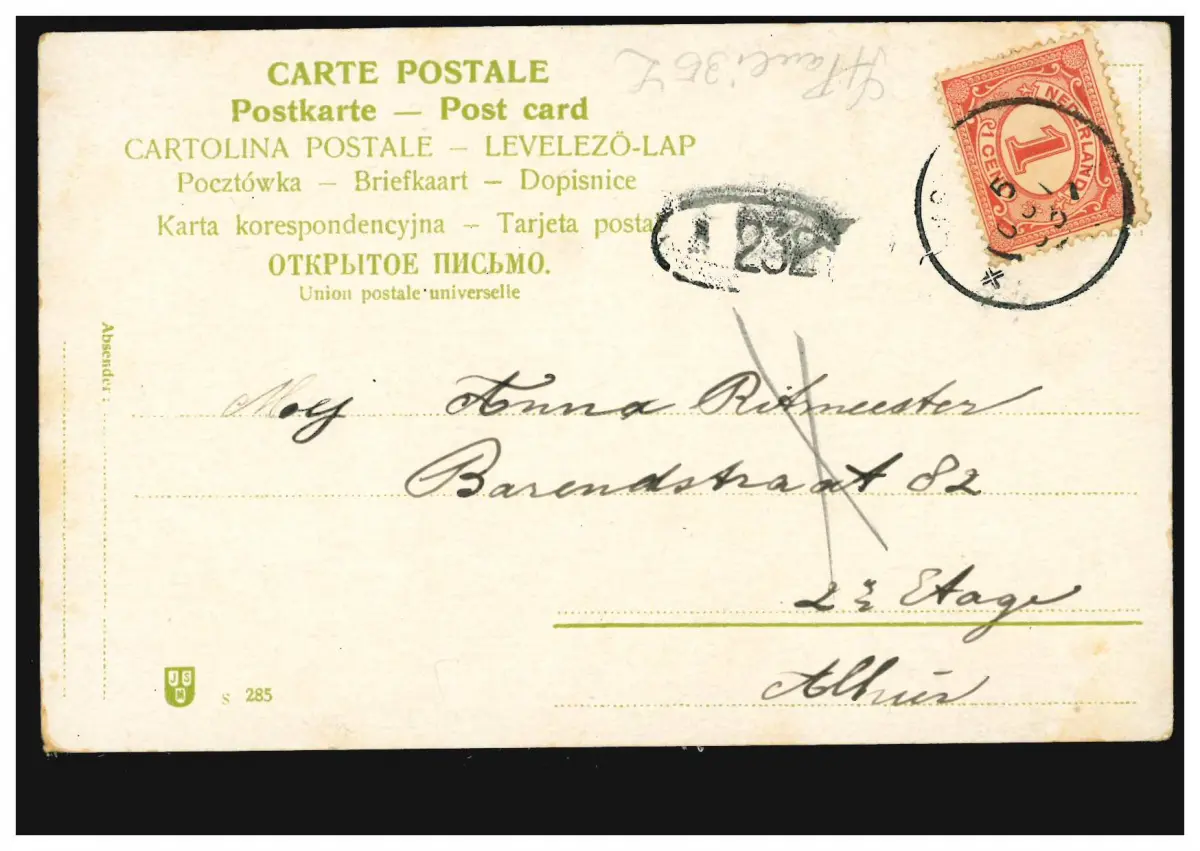 CARTE POSTALE
Postkarte — Post card
CARTOLINA POSTALE — LEVELEZŐ-LAP
Pocztówka — Briefkaart — Dopisnice
Karta korespondencyjna — Tarjeta postal
ОТКРЫТОЕ ПИСЬМО.
Union postale universelle
NEDERLAND
1
1 CENT
232
Absender:
Mej Anna Ritmeester
Barendstraat 82
2e Etage
Alhier
JSM
S 285